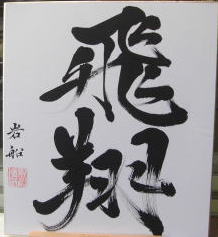 飛翔
岩船